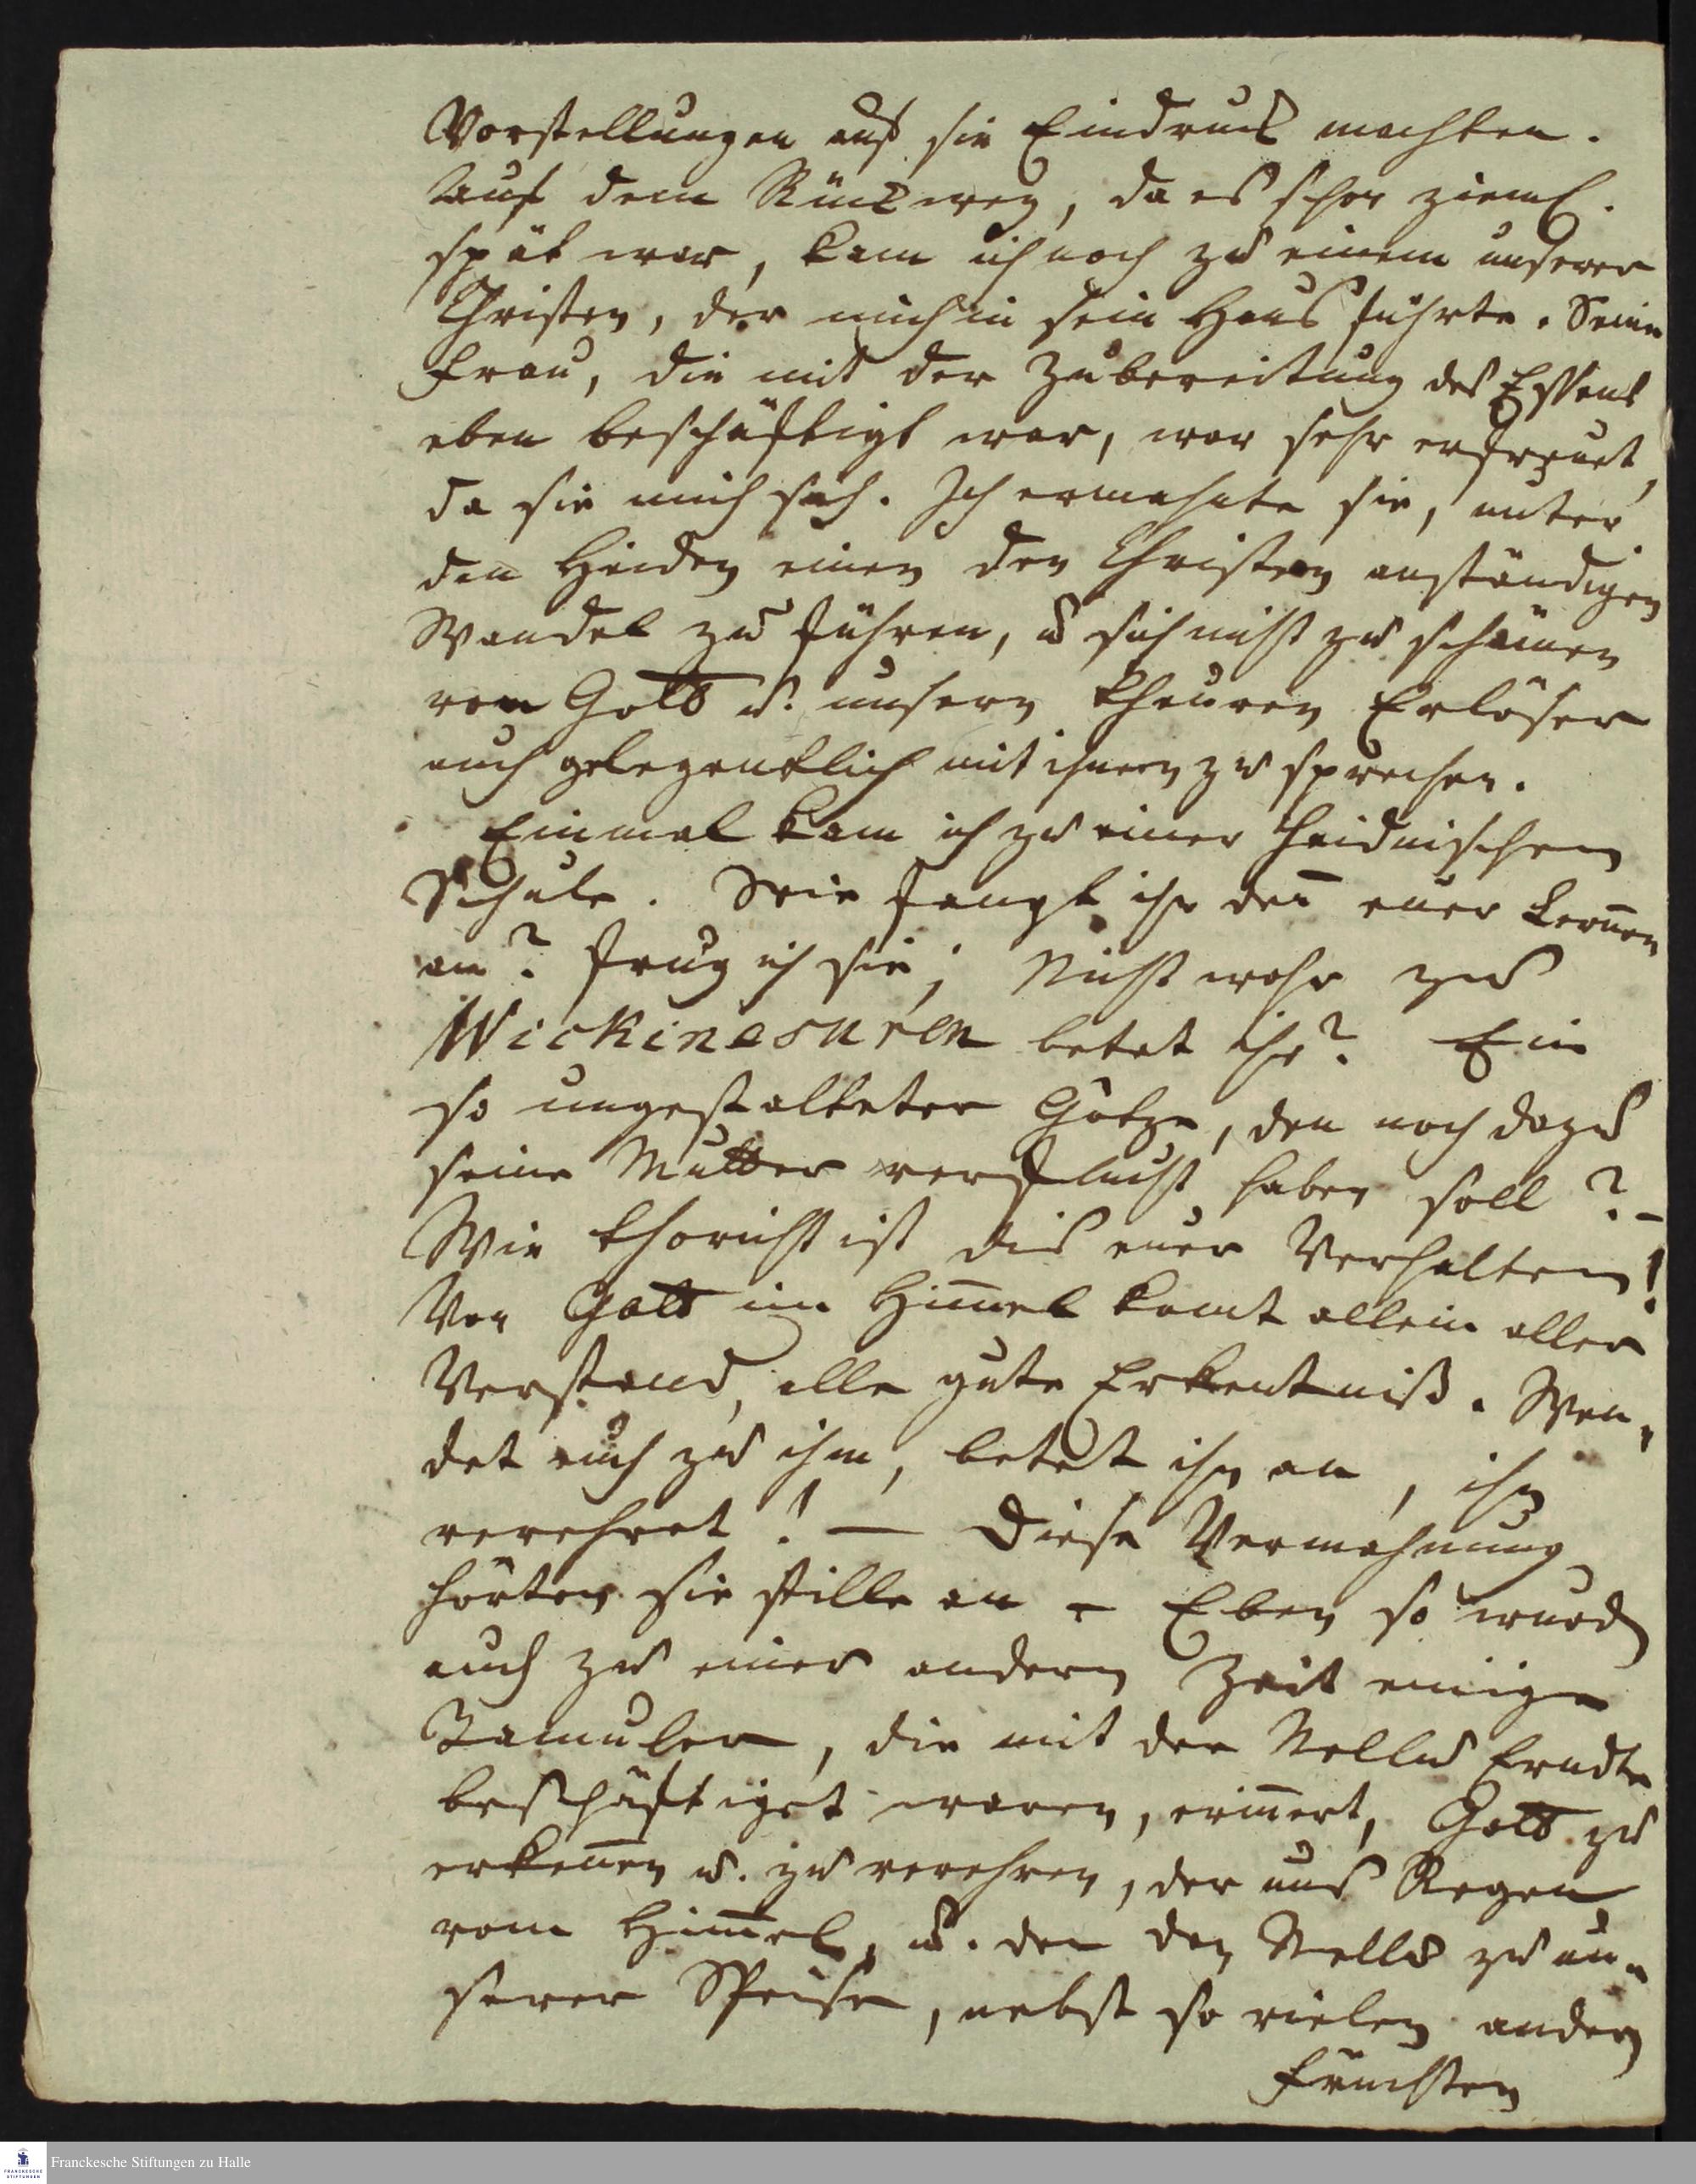 Vorstellungen auf sie Eindruck machten.
Auf dem Rückweg, da es schon zieml.
spät war, kam ich noch zu einem unserer
Christen, der mich in sein Haus führte. Seine
Frau, die mit der Zubereitung des Essens
eben beschäftigt war, war sehr erfreuet,
da sie mich sah. Ich ermahnte sie, unter
den Heiden einen den Christen anständigen
Wandel zu führen, u sich nicht zu schämen
von Gott u. unsern theuren Erlöser
auch gelegentlich mit ihnen zu sprechen.
Einmal kam ich zu einer heidnischen
Schule. Wie fangt ihr den̄ euer Lernen
an? frug ich sie; Nicht wahr zu
Wickinesuren betet ihr? Ein
so ungestalteter Götze, den noch dazu
seine Mutter verflucht haben soll? –
Wie thöricht ist dis euer Verhalten!
Von Gott im Him̄el komt allein aller
Verstand, alle gute Erkentniß. Wen„
det euch zu ihm, betet ihn an, ihn
verehret! — Diese Vermahnung
hörten sie stille an – Eben so wurden
auch zu einer andern Zeit einige
Tamuler, die mit der Nellu Erndte
beschäftiget waren, erin̄ert, Gott zu
erken̄en u. zu verehren, der uns Regen
vom Him̄el, u. der den Nellu zu un„
serer Speise, nebst so vielen andern
Früchten
Franckesche Stiftungen zu Halle
FRANCKESCHE
STIFTUNGEN